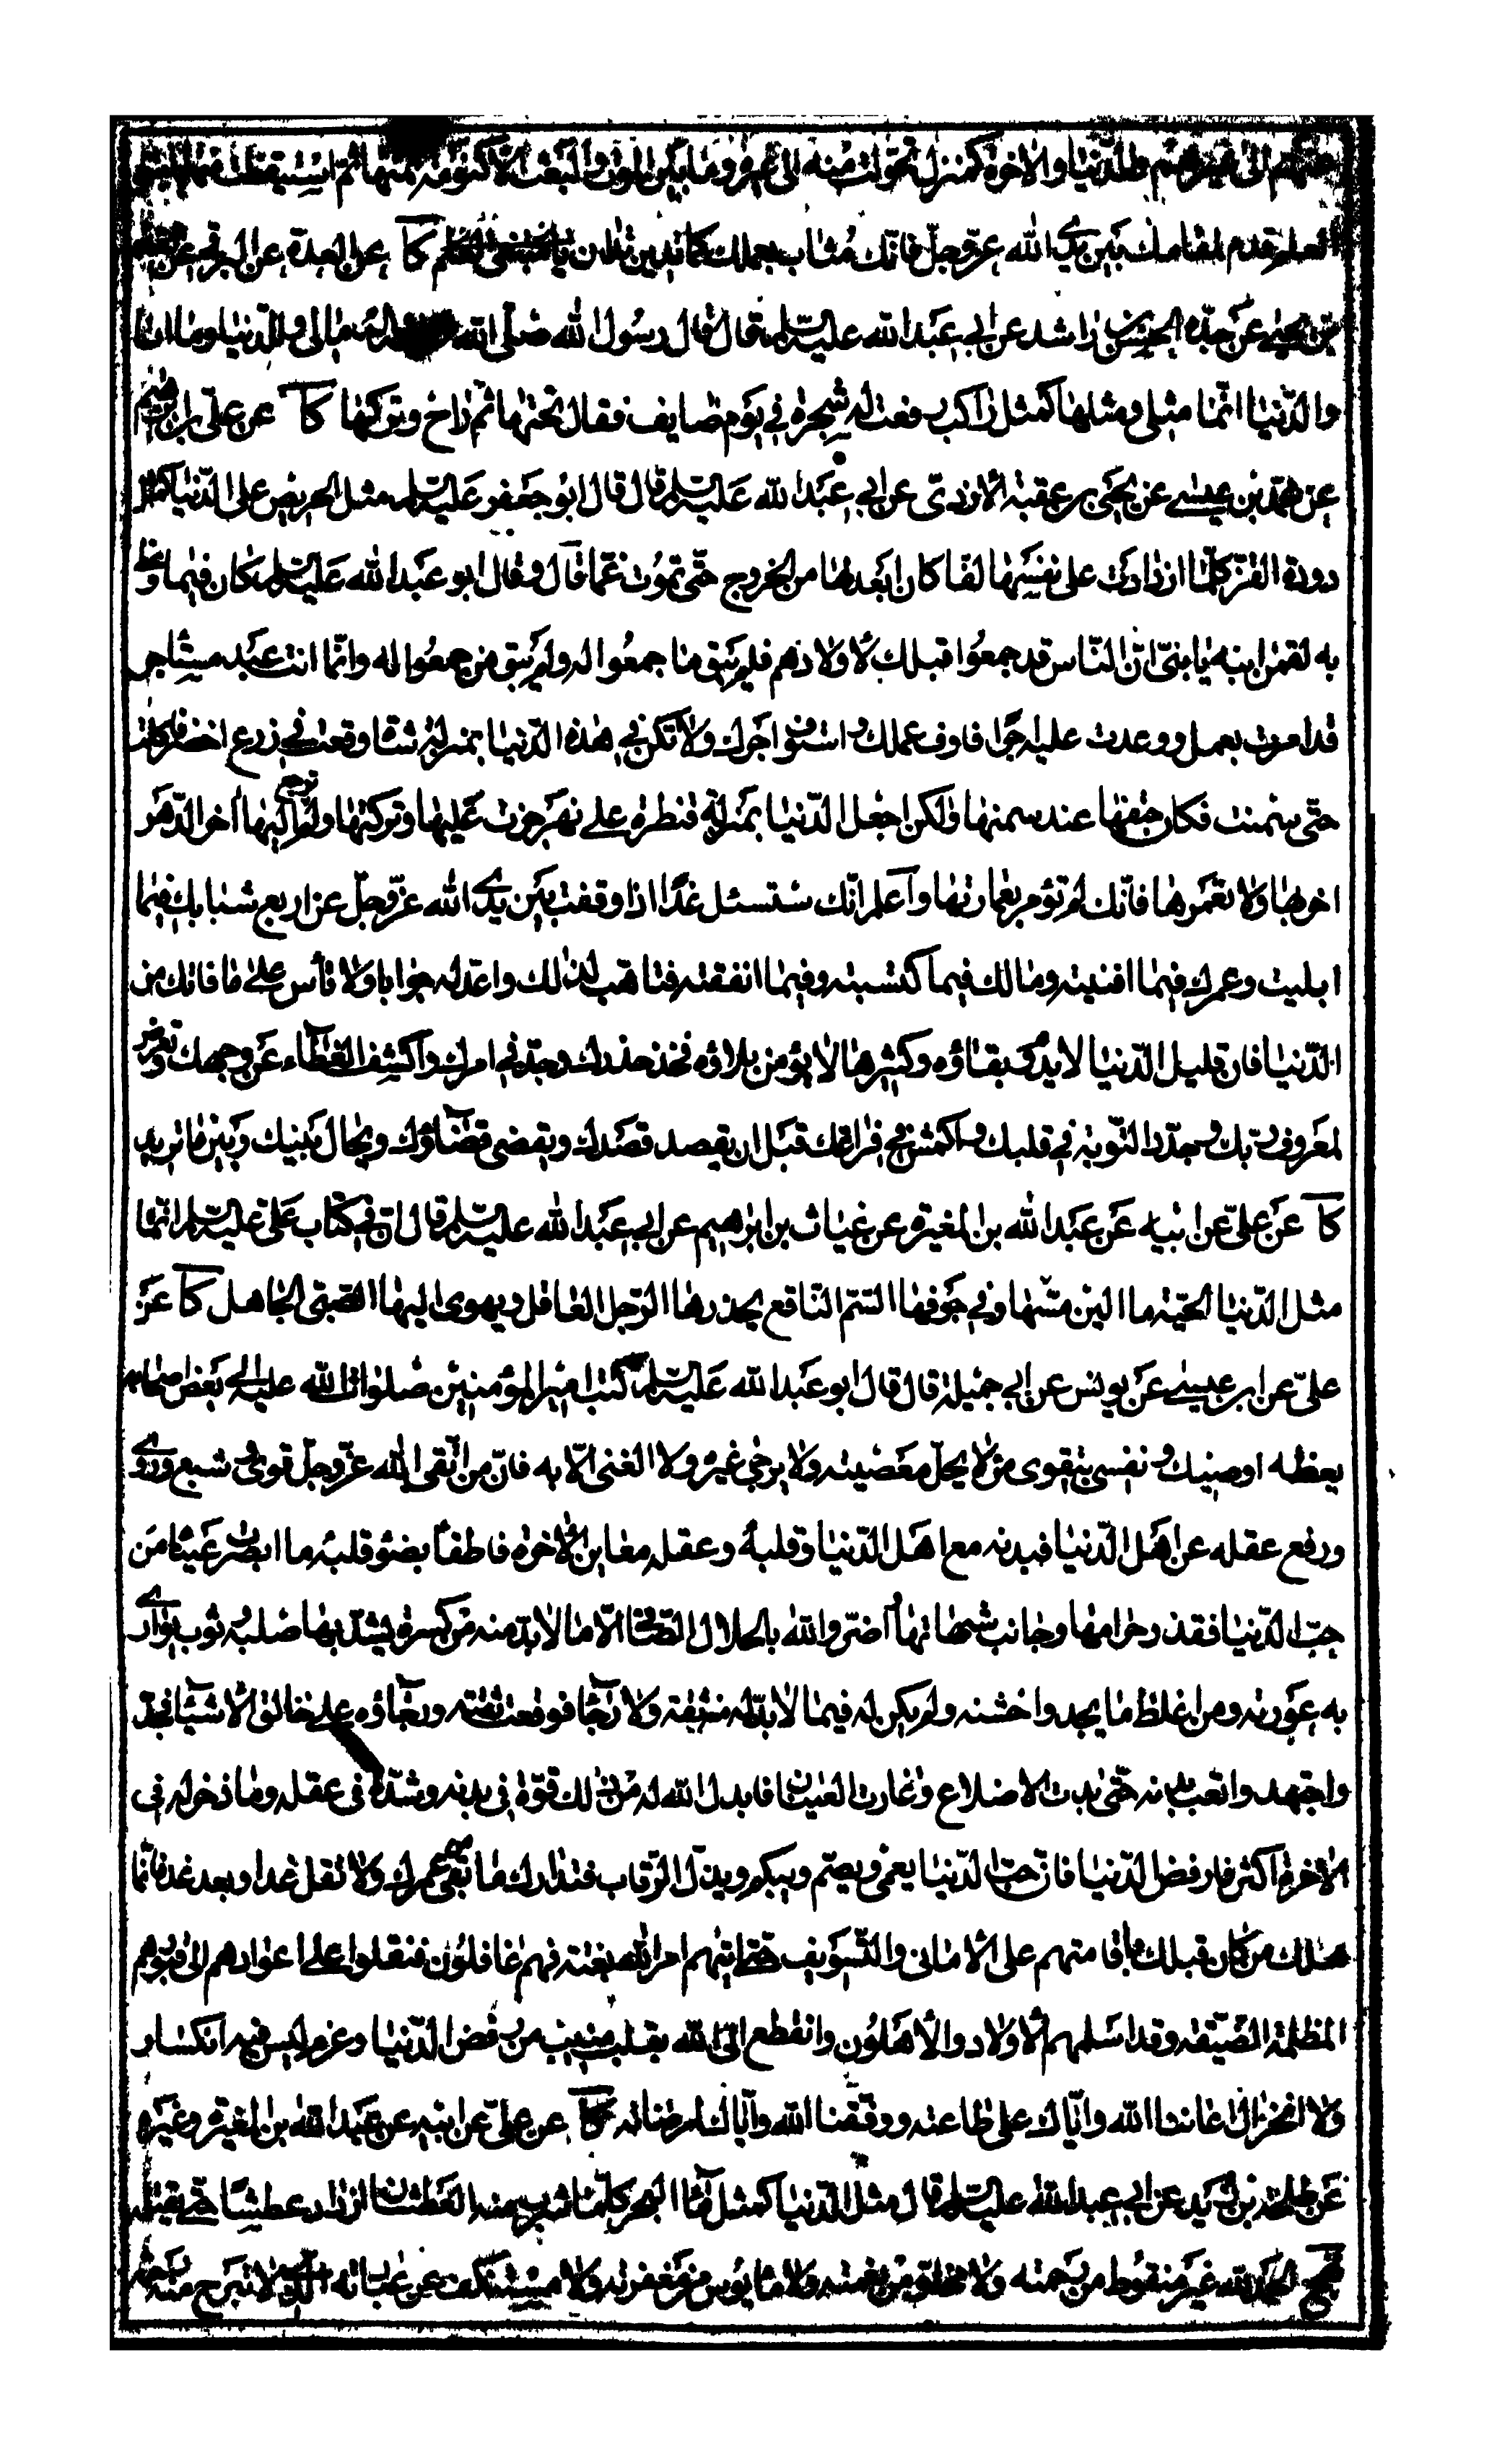 عنهم الى غيرهم والدّنيا والاخرة كمنزل تحوّلت منه الى غيره وما بين الموت والبعث الّا كنومة نمتها ثم استيقظت منها
العلم قدم لمقامك بين يدي الله عزّ وجلّ فانّك مثاب بعملك كما تدين تدان يا مبتغى العلم كا عن العدة عن البرقي عن
بن يحيى عن جدّه الحسن بن راشد عن ابي عبد الله عليه السّلم قال قال رسول الله صلّى الله مالى وللدّنيا وما انا
والدّنيا انّما مثلي ومثلها كمثل راكب رفعت له شجرة في يوم صايف فقال تحتها ثم راح وتركها كا عن علي بن ابرهيم
عن محمّد بن عيسى عن يحيى بن عقبة الازدىّ عن ابي عبد الله عليه السّلم قال قال ابو جعفر عليه السّلم مثل الحريص على الدّنيا كمثل
دودة القزّ كلّما ازدادت على نفسها لفّا كان ابعد لها من الخروج حتّى تموت غمّا قال وقال ابو عبد الله عليه السّلم كان فيما وعظ
به لقمن ابنه يا بنىّ انّ النّاس قد جمعوا قبلك لاولادهم فلم يبق ما جمعوا له ولم يبق من جمعوا له وانّما انت عبد مستاجر
قد امرت بعمل ووعدت عليه اجرا فاوف عملك واستوف اجرك ولا تكن في هذه الدّنيا بمنزلة شاة وقعت في زرع اخضر فاكلت
حتى سمنت فكان حتفها عند سمنها ولكن اجعل الدّنيا بمنزلة قنطرة على نهر جزت عليها وتركتها ولم ترجع اليها اخر الدّهر
اخربها ولا تعمرها فانّك لم تؤمر بعمارتها واعلم انّك ستسئل غدًا اذا وقفت بين يدي الله عزّ وجلّ عن اربع شبابك فيما
ابليته وعمرك فيما افنيته ومالك فيما كتسبته وفيما انفقته فتاهّب لذلك واعدّ له جوابا ولا تأس على ما فاتك من
الدّنيا فان قليل الدّنيا لا يدوم بقاؤه وكثيرها لا يؤمن بلاؤه فخذ حذرك وجدّ في امرك واكشف الغطاء عن وجهك وتعرض
لمعروف ربّك وجدّد التّوبة في قلبك واكمش في فراغك قبل ان يقصد قصدك ويقضى قضاؤك ويحال بينك وبين ما تريد
كا عن علىّ عن ابيه عن عبد الله بن المغيرة عن غياث بن ابرهيم عن ابي عبد الله عليه السّلم قال انّ في كتاب على عليه السّلم انّما
مثل الدّنيا الحيّة ما الين مسّها وفي جوفها السّم النّاقع يحذرها الرّجل العاقل ويهوى اليها الصّبىّ الجاهل كا عن
علىّ عن ابن عيسى عن يونس عن ابي جميلة قال قال ابو عبد الله عليه السّلم كتب امير المؤمنين صلوات الله عليه الى بعض اصحابه
يعظه اوصيك ونفسي بتقوى من لا يحلّ معصيته ولا يرجى غيره ولا الغنى الّا به فانّ من اتّقى الله عزّ وجلّ قوي شبع وروي
ورفع عقله عن اهل الدّنيا فبدنه مع اهل الدّنيا وقلبه وعقله معاين الاخرة فاطفأ بضو قلبه ما ابصرت عيناه من
حبّ الدّنيا فقذر حرامها وجانب شبهاتها اضرّ والله بالحلال الصّافي الّا ما لا بد منه من كسرة يشدّ بها صلبه ثوب يواري
به عورته ومن اغلظ ما يجد واخشنه ولم يكن له فيما لا بدّ له منه ثقة ولا رجا فوقعت ثقته ورجاؤه على خالق الاشيا فجدّ
واجتهد واتعب بدنه حتّى بدت الاضلاع وغارت العينان فابدل الله له من ذلك قوّة في بدنه وشدّة في عقله وما ذخر له في
الاخرة اكثر فارفض الدّنيا فانّ حبّ الدّنيا يعمى ويصمّ ويبكم ويذلّ الرّقاب فتدارك ما بقي من عمرك ولا تقل غدا وبعد غد فانّما
هلك من كان قبلك باقامتهم على الامانى والتّسويف حتّى اتيهم امر الله بغتة فهم غافلون فنقلوا على اعوادهم الى قبورهم
المظلمة الضّيّقة وقد اسلمهم الاولاد والاهلون وانقطع الى الله بقلب منيب من رفض الدّنيا وعزم ليس فيه انكسار
ولا انخزال اعاننا الله وايّاك على طاعته ووفّقنا الله وايّاك لمرضاته كا عن علىّ عن ابيه عن عبد الله بن المغيرة وغيره
عن طلحة بن زيد عن ابي عبد الله عليه السّلم قال مثل الدّنيا كمثل ماء البحر كلّما شرب منه العطشان ازداد عطشا حتّى يقتله
نهج الحمد لله غير مقنوط من رحمته ولا مخلوّ من نعمته ولا مايوس من مغفرته ولا مستنكف عن عبادته الّذي لا تبرح منه رحمة